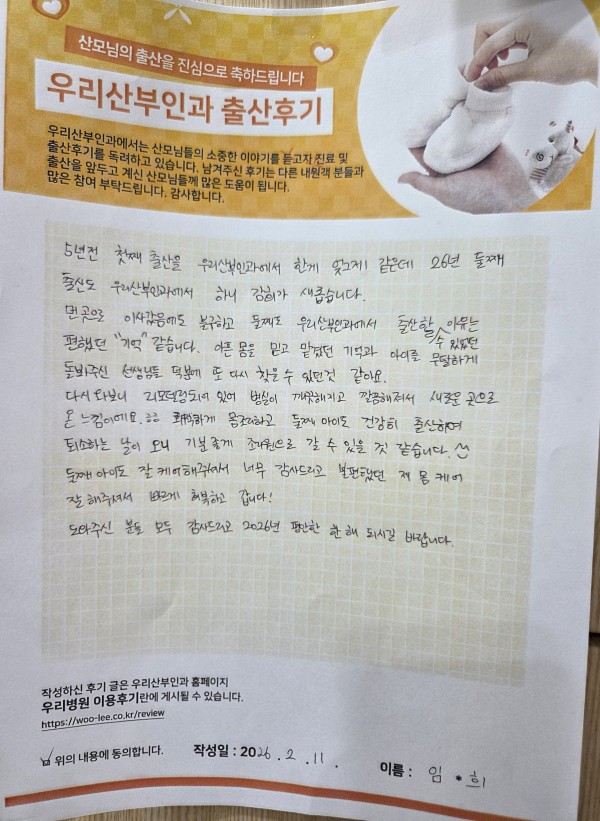 산모님의 출산을 진심으로 축하드립니다
우리산부인과 출산후기
우리산부인과에서는 산모님들의 소중한 이야기를 듣고자 진료 및
출산후기를 독려하고 있습니다. 남겨주신 후기는 다른 내원객 분들과
출산을 앞두고 계신 산모님들께 많은 도움이 됩니다.
많은 참여 부탁드립니다. 감사합니다.
5년전 첫째 출산을 우리산부인과에서 한게 엊그제 같은데 26년 둘째
출산도 우리산부인과에서 하니 감회가 새롭습니다.
먼곳으로 이사갔음에도 불구하고 둘째도 우리산부인과에서 출산할 수 있었던 이유는
편했던 "기억" 같습니다. 아픈 몸을 믿고 맡겼던 기억과 아이를 무탈하게
돌봐주신 선생님들 덕분에 또 다시 찾을 수 있던것 같아요.
다시 와보니 리모델링되어 있어 병실이 깨끗해지고 깔끔해져서 새로운 곳으로
온 느낌이에요. ㅎㅎ 쾌적하게 몸조리하고 둘째 아이도 건강히 출산하여
퇴소하는 날이 오니 기분좋게 조리원으로 갈 수 있을 것 같습니다.
둘째 아이도 잘 케어해주셔서 너무 감사드리고 불편했던 제 몸 케어
잘 해주셔서 빠르게 회복하고 갑니다!
도와주신 분들 모두 감사드리고 2026년 평안한 한 해 되시길 바랍니다.
작성하신 후기 글은 우리산부인과 홈페이지
우리병원 이용후기란에 게시될 수 있습니다.
https://woo-lee.co.kr/review
위의 내용에 동의합니다. 작성일 : 2026 . 2 . 11 . 이름 : 임 * 희